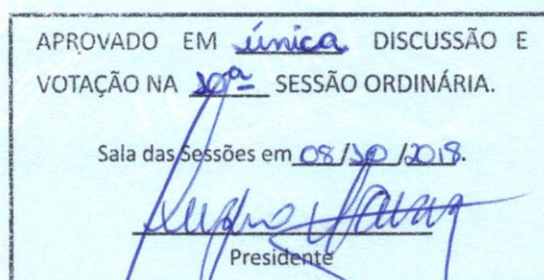 APROVADO EM única DISCUSSÃO E
VOTAÇÃO NA 10ª SESSÃO ORDINÁRIA.
Sala das Sessões em 08/10/2018.
Presidente